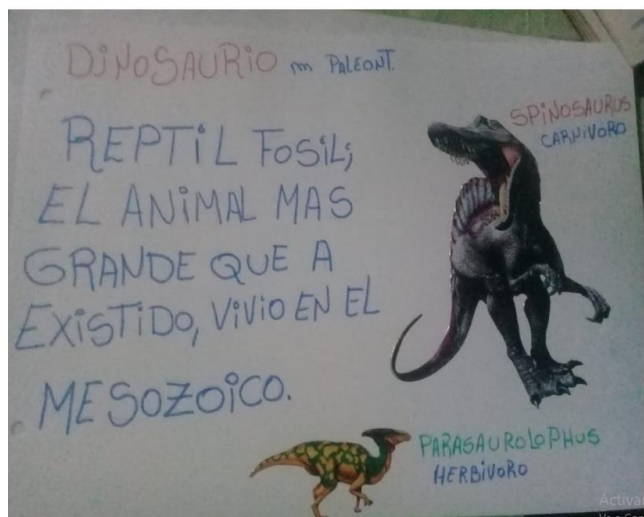 DiNOSAURiO m PALEONT.
REPTiL FOSiL;
EL ANiMAL MAS
GRANDE QUE A
EXiSTiDO, ViViO EN EL
MESOZOiCO.
SPiNOSAURUS
CARNiVORO
PARASAUROLOPHUS
HERBiVORO